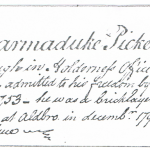 armaduke Picke
gh in Holderness Office
admitted to his freedom by
753 – he was a bricklayer
at Aldbro in decembr 179